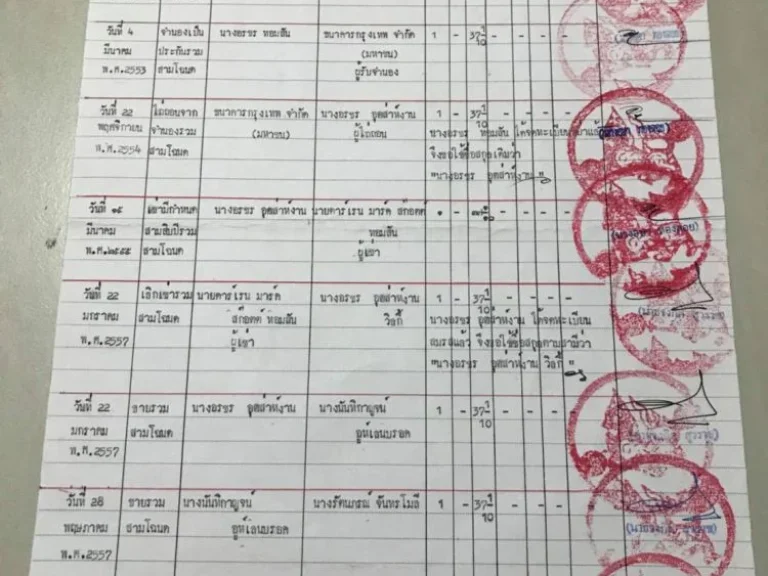 วันที่ 4 จำนองเป็น นางอรชร ทอมสัน ธนาคารกรุงเทพ จำกัด 1 - 37 1/10 - - - -
มีนาคม ประกันรวม (มหาชน)
พ.ศ.2553 สามโฉนด ผู้รับจำนอง
วันที่ 22 ไถ่ถอนจาก ธนาคารกรุงเทพ จำกัด นางอรชร อุตส่าห์งาน 1 - 37 1/10 - - - -
พฤศจิกายน จำนองรวม (มหาชน) ผู้ไถ่ถอน นางอรชร ทอมสัน ได้จดทะเบียน
พ.ศ.2554 สามโฉนด จึงขอใช้ชื่อสกุลเดิมว่า
"นางอรชร อุตส่าห์งาน"
วันที่ ๑๕ เช่ามีกำหนด นางอรชร อุตส่าห์งาน นายดาร์เรน มาร์ค สก๊อตต์ ๑ - - - - -
มีนาคม สามสิบปีรวม ทอมสัน
พ.ศ.๒๕๕๕ สามโฉนด ผู้เช่า
วันที่ 22 เลิกเช่ารวม นายดาร์เรน มาร์ค นางอรชร อุตส่าห์งาน 1 - 37 1/10 - - - -
มกราคม สามโฉนด สก๊อตต์ ทอมสัน วิลกี้ นางอรชร อุตส่าห์งาน ได้จดทะเบียน
พ.ศ.2557 ผู้เช่า สมรสแล้ว จึงขอใช้ชื่อสกุลตามสามีว่า
"นางอรชร อุตส่าห์งาน วิลกี้"
วันที่ 22 ขายรวม นางอรชร อุตส่าห์งาน นางนันทิกาญจน์ 1 - 37 1/10 - - - -
มกราคม สามโฉนด อูห์เลนบรอค
พ.ศ.2557
วันที่ 28 ขายรวม นางนันทิกาญจน์ นางรัตนภรณ์ จันทรโมลี 1 - 37 1/10 - - - -
พฤษภาคม สามโฉนด อูห์เลนบรอค
พ.ศ.2557